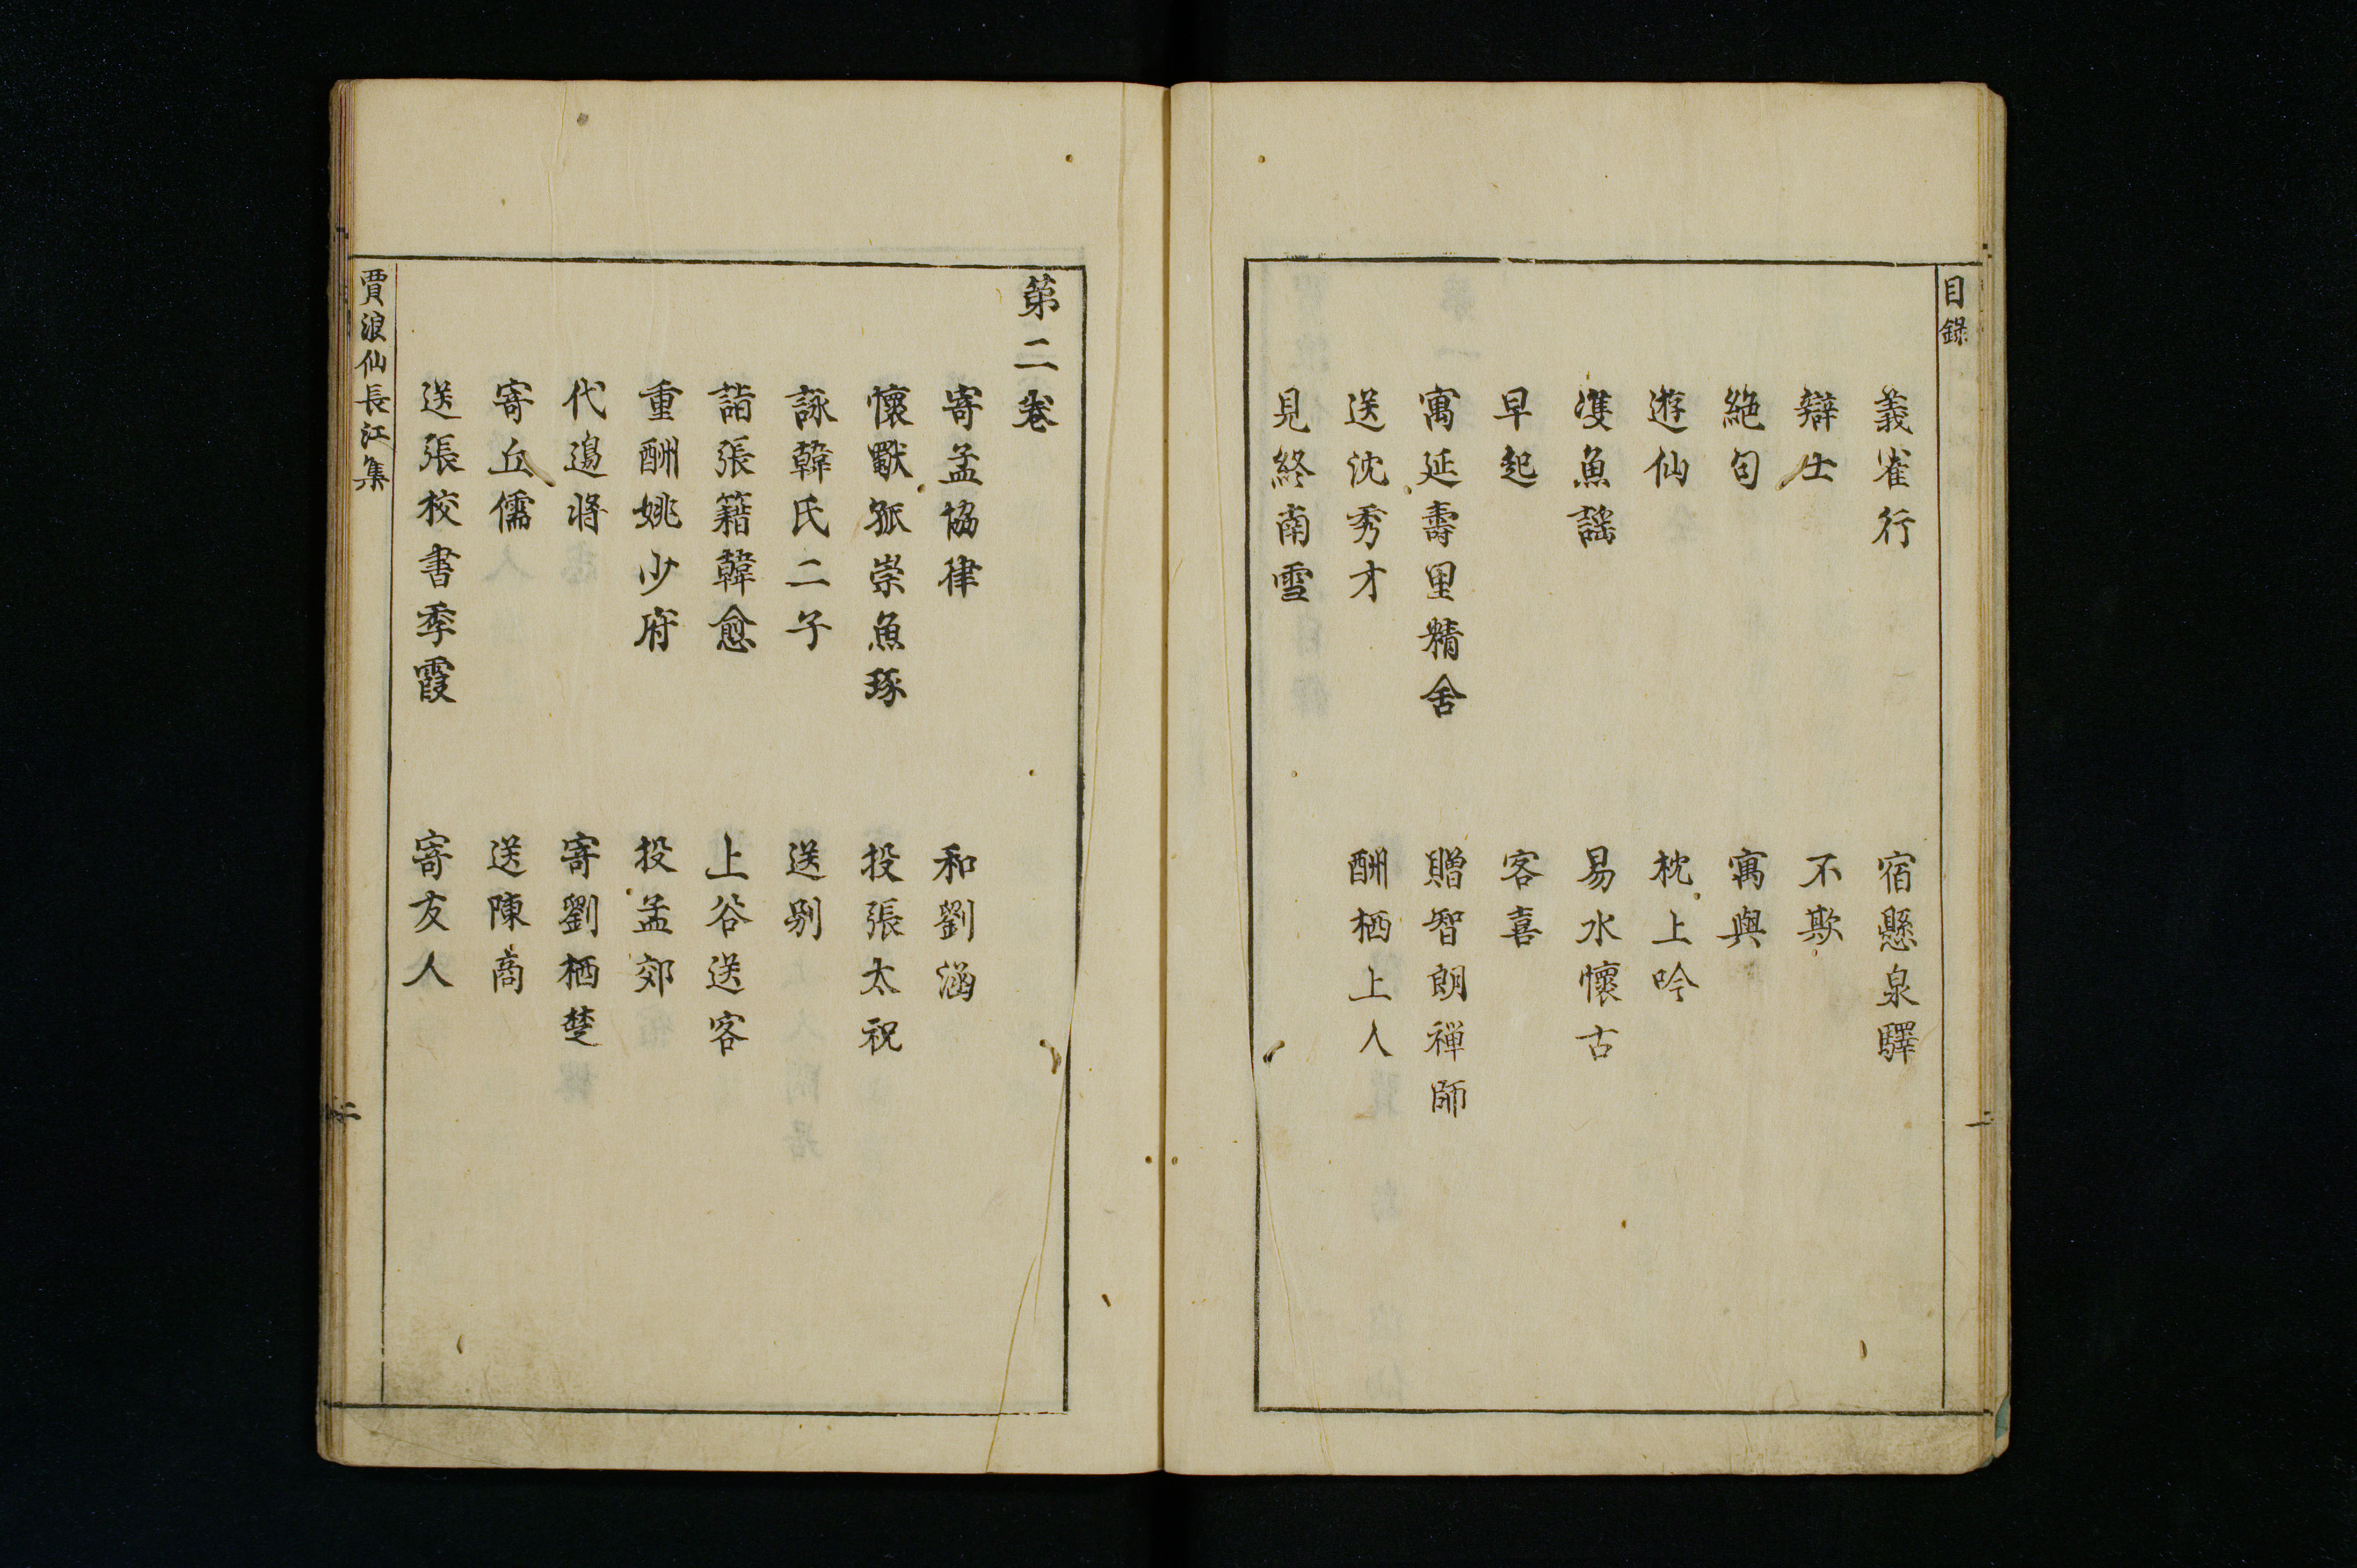 目錄
義雀行 宿懸泉驛
辯士 不欺
絕句 寓興
遊仙 枕上吟
雙魚謠 易水懷古
早起 客喜
寓延壽里精舍 贈智朗禅師
送沈秀才 酬栖上人
見終南雪
二
第二卷
寄孟協律 和劉涵
懷 崇魚琢 投張太祝
詠韓氏二子 送别
詣張籍韓愈 上谷送客
重酬姚少府 投孟郊
代邊將 寄劉栖楚
寄丘儒 送陳商
送張校書季霞 寄友人
賈浪仙長江集
二